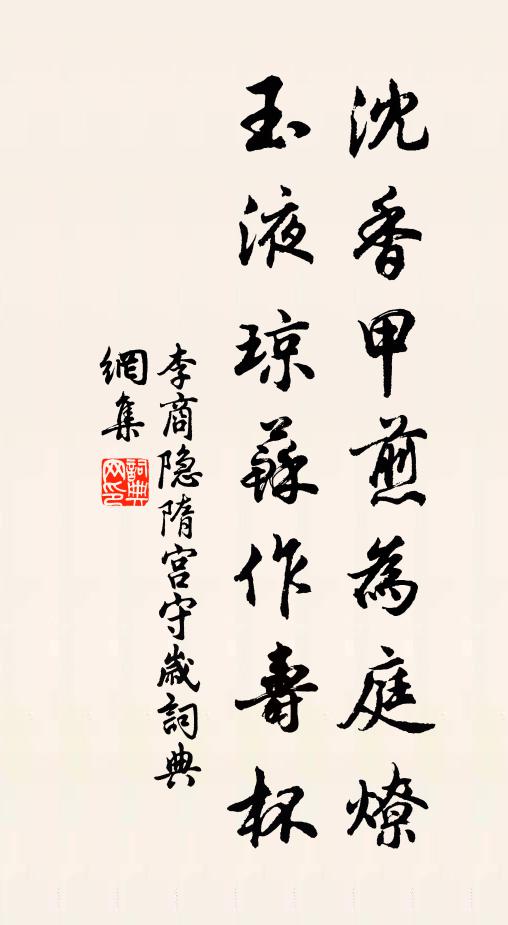 沈香甲煎為庭燎
玉液琼蘇作壽杯
李商隐隋宫守歲詞典
網集
詞典
网印